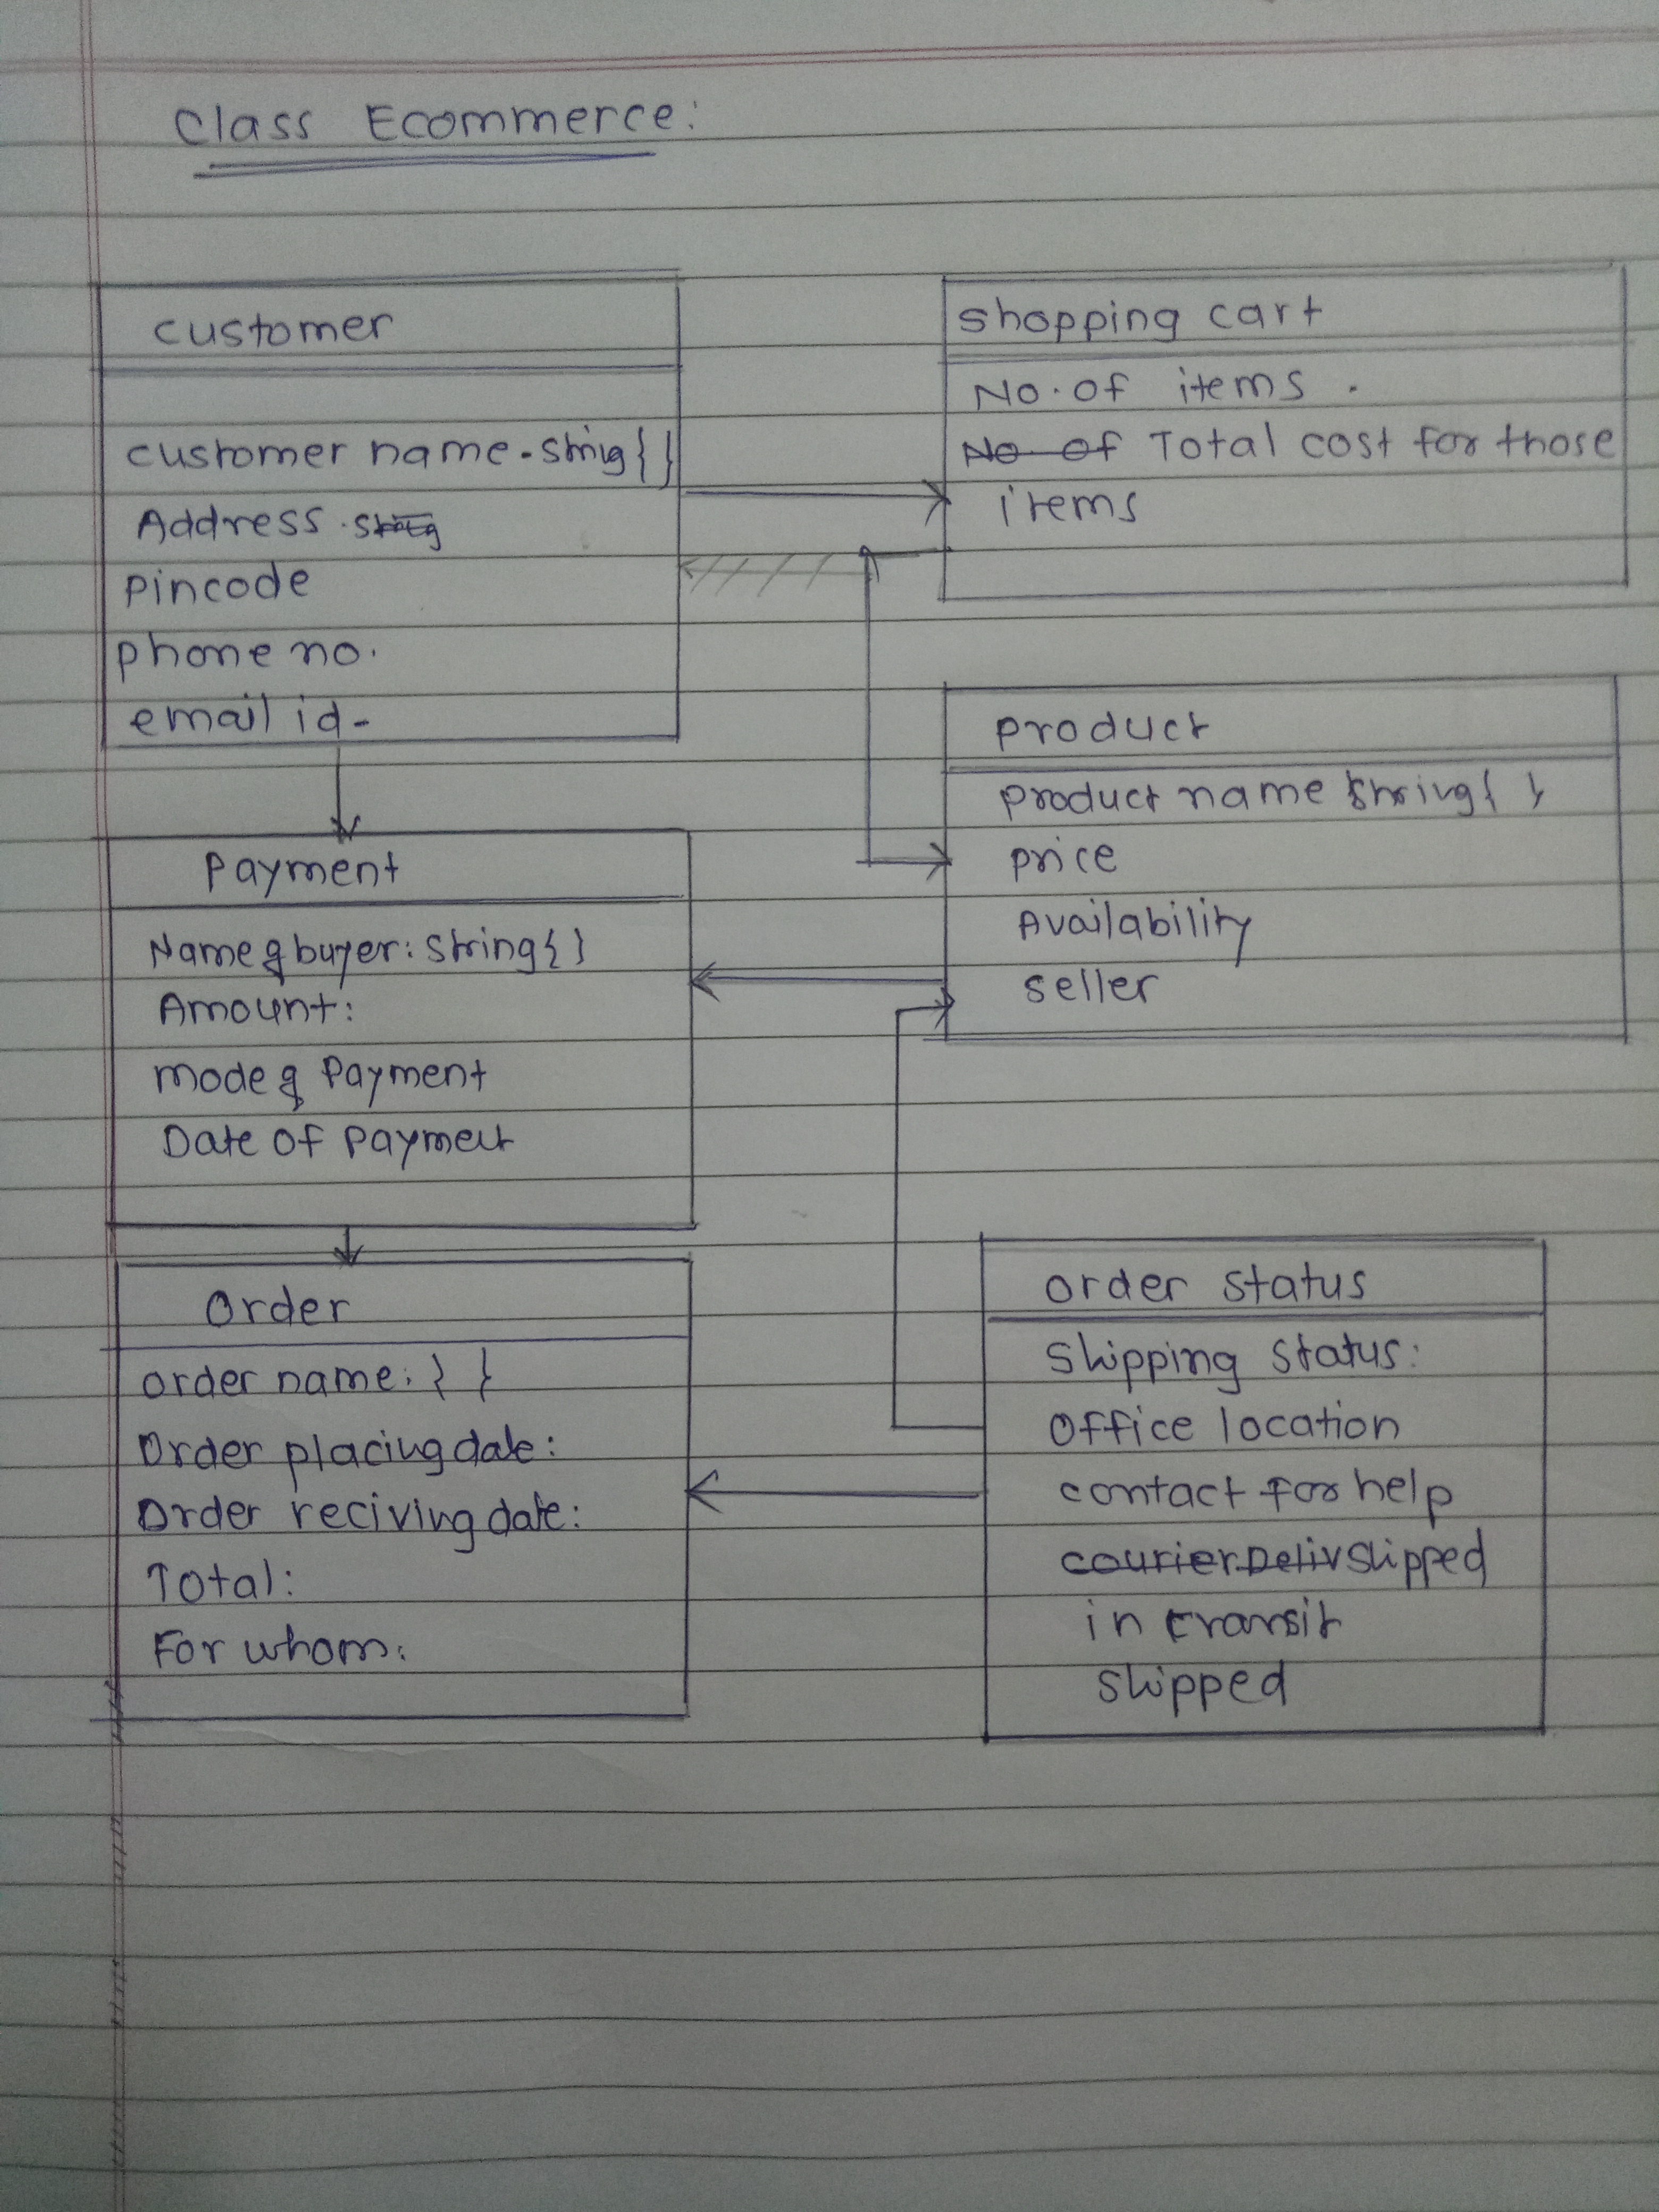 Class Ecommerce:
customer
customer name - String { }
Address . String
Pincode
phone no.
email id -
shopping cart
No. of items .
No of Total cost for those
items
Product
product name String { }
price
Availability
seller
Payment
Name of buyer : String { }
Amount :
mode of Payment
Date of Payment
Order
order name : { }
Order placing date :
Order reciving date :
Total :
For whom :
order status
Shipping status :
Office location
contact for help
courier Deliv Shipped
in transit
Shipped